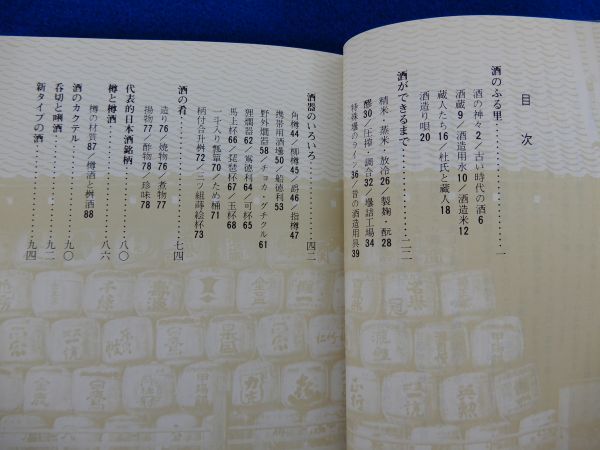 目次
酒のふる里……………一
酒の神々2／古い時代の酒6
酒蔵9／酒造用水10／酒造米12
蔵人たち16／杜氏と蔵人18
酒造り唄20
酒ができるまで……………二二
精米・蒸米・放冷26／製麹・酛28
醪30／圧搾・調合32／壜詰工場34
特殊壜のライン36／昔の酒造用具39
酒器のいろいろ……………四二
角樽44／柳樽45／爵46／指樽47
携帯用酒壜50／船徳利53
野外燗器58／チョカ・グチクル61
狸燗器62／鴬徳利64／可杯65
馬上杯66／琵琶杯67／玉杯68
一斗入り瓢箪70／ため桶71
柄付合升桝72／三ツ組蒔絵杯73
酒の肴……………七四
造り76／焼物76／煮物77
揚物77／酢物78／珍味78
代表的日本酒銘柄……………八〇
樽と樽酒……………八六
樽の材質87／樽酒と桝酒88
酒のカクテル……………九〇
呑切と唎酒……………九二
新タイプの酒……………九四